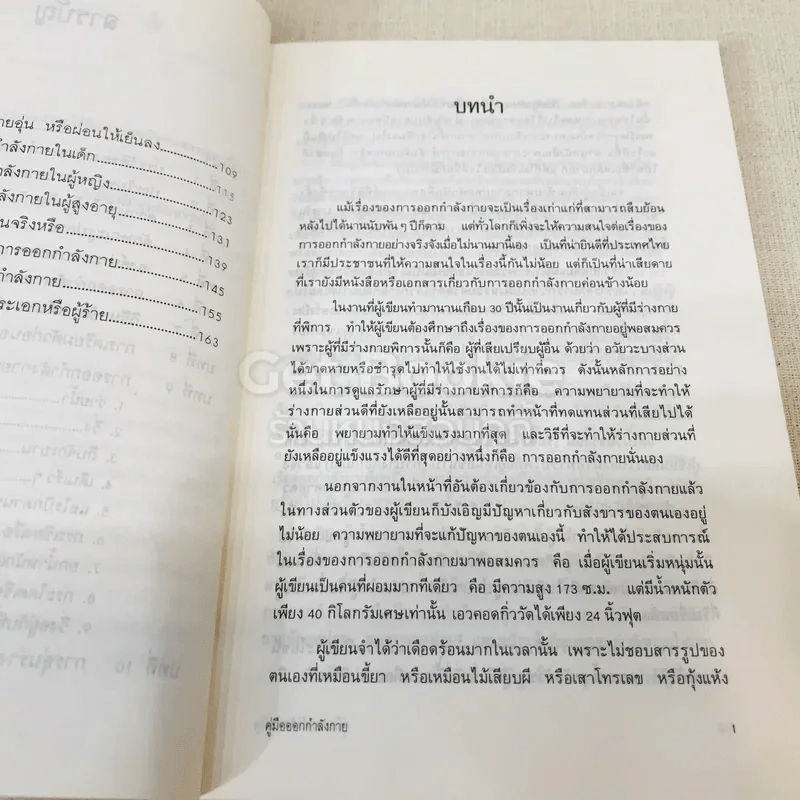 สารบัญ
ายอุ่น หรือผ่อนให้เย็นลง..................109
กำลังกายในเด็ก..................115
ำลังกายในผู้หญิง..................123
ลังกายในผู้สูงอายุ..................131
นจริงหรือ..................139
การออกกำลังกาย..................145
กำลังกาย..................155
ระเอกหรือผู้ร้าย..................163
บทนำ
แม้เรื่องของการออกกำลังกายจะเป็นเรื่องเก่าแก่ที่สามารถสืบย้อน
หลังไปได้นานนับพันๆ ปีก็ตาม แต่ทั่วโลกก็เพิ่งจะให้ความสนใจต่อเรื่องของ
การออกกำลังกายอย่างจริงจังเมื่อไม่นานมานี้เอง เป็นที่น่ายินดีที่ประเทศไทย
เราก็มีประชาชนที่ให้ความสนใจในเรื่องนี้กันไม่น้อย แต่ก็เป็นที่น่าเสียดาย
ที่เรายังมีหนังสือหรือเอกสารเกี่ยวกับการออกกำลังกายค่อนข้างน้อย
ในงานที่ผู้เขียนทำมานานเกือบ 30 ปีนั้นเป็นงานเกี่ยวกับผู้ที่มีร่างกาย
ที่พิการ ทำให้ผู้เขียนต้องศึกษาถึงเรื่องของการออกกำลังกายอยู่พอสมควร
เพราะผู้ที่มีร่างกายพิการนั้นก็คือ ผู้ที่เสียเปรียบผู้อื่น ด้วยว่า อวัยวะบางส่วน
ได้ขาดหายหรือชำรุดไปทำให้ใช้งานได้ไม่เท่าที่ควร ดังนั้นหลักการอย่าง
หนึ่งในการดูแลรักษาผู้ที่มีร่างกายพิการก็คือ ความพยายามที่จะทำให้
ร่างกายส่วนดีที่ยังเหลืออยู่นั้นสามารถทำหน้าที่ทดแทนส่วนที่เสียไปได้
นั่นคือ พยายามทำให้แข็งแรงมากที่สุด และวิธีที่จะทำให้ร่างกายส่วนที่
ยังเหลืออยู่แข็งแรงได้ดีที่สุดอย่างหนึ่งก็คือ การออกกำลังกายนั่นเอง
นอกจากงานในหน้าที่อันต้องเกี่ยวข้องกับการออกกำลังกายแล้ว
ในทางส่วนตัวของผู้เขียนก็บังเอิญมีปัญหาเกี่ยวกับสังขารของตนเองอยู่
ไม่น้อย ความพยายามที่จะแก้ปัญหาของตนเองนี้ ทำให้ได้ประสบการณ์
ในเรื่องของการออกกำลังกายมาพอสมควร คือ เมื่อผู้เขียนเริ่มหนุ่มนั้น
ผู้เขียนเป็นคนที่ผอมมากทีเดียว คือ มีความสูง 173 ซ.ม. แต่มีน้ำหนักตัว
เพียง 40 กิโลกรัมเศษเท่านั้น เอวคอดกิ่ววัดได้เพียง 24 นิ้วฟุต
ผู้เขียนจำได้ว่าเดือดร้อนมากในเวลานั้น เพราะไม่ชอบสารรูปของ
ตนเองที่เหมือนขี้ยา หรือเหมือนไม้เสียบผี หรือเสาโทรเลข หรือกุ้งแห้ง
คู่มือออกกำลังกาย
1